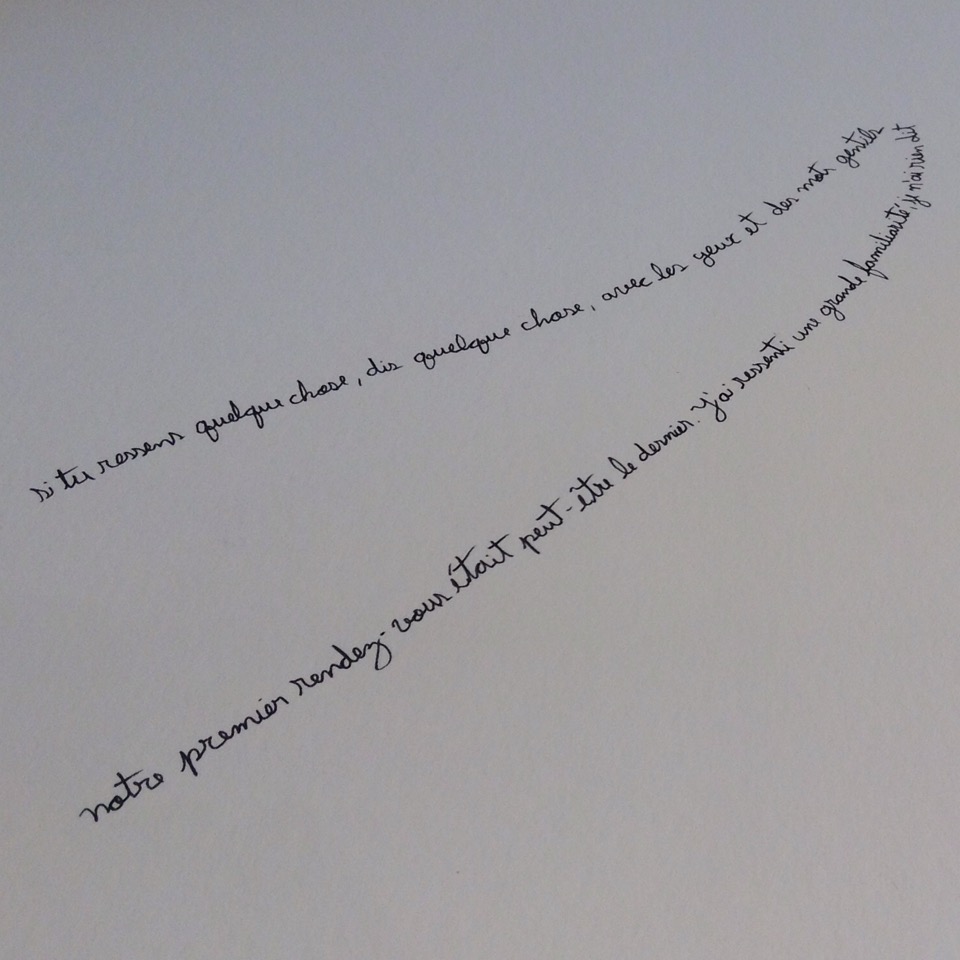 si tu ressens quelque chose, dis quelque chose, avec les yeux et des mots gentils
notre premier rendez-vous était peut-être le dernier. j'ai ressenti une grande familiarité, je n'ai rien dit